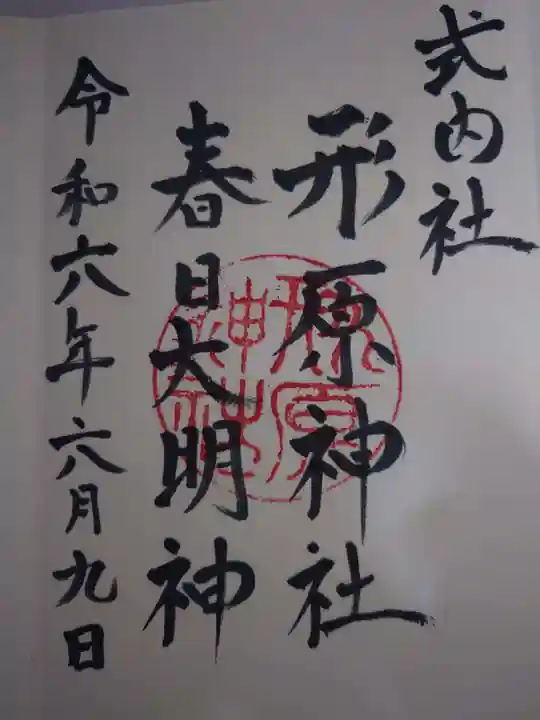 式内社
形原神社
春日大明神
令和六年六月九日
形原
神社